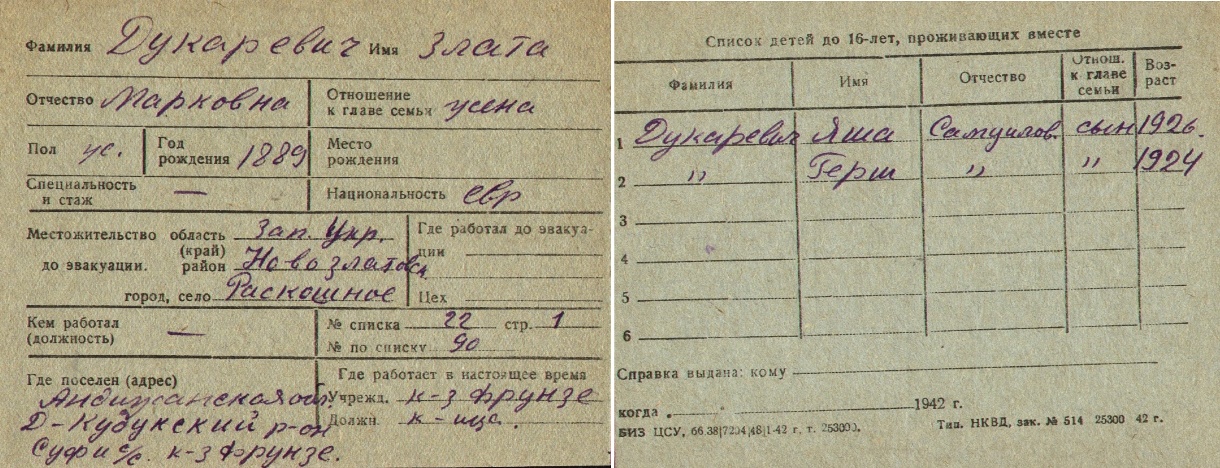 Фамилия Дукаревич Имя Злата
Отчество Марковна
Отношение
к главе семьи жена
Пол ж.
Год
рождения 1889
Место
рождения
Специальность
и стаж —
Национальность евр
Местожительство область Зап. Укр.
(край)
до эвакуации. район Новозлатовск
город, село Раскошное
Где работал до эвакуа-
ции
Цех
Кем работал
(должность) —
№ списка 22 стр. 1
№ по списку 90
Где поселен (адрес)
Андижанская об.
Д-Кудукский р-он
Суфи с/с. к-з Фрунзе.
Где работает в настоящее время
Учрежд. к-з Фрунзе
Должн. к-ица.
Список детей до 16-лет, проживающих вместе
Фамилия Имя Отчество Отнош. к главе семьи Воз-раст
1 Дукаревич Яша Самуилов. сын 1926.
2 " Герш " " 1924
3
4
5
6
Справка выдана: кому
когда 1942 г.
БИЗ ЦСУ, 66.38|7204|48|1-42 г, т. 253000. Тип. НКВД, зак. № 514 25300 42 г.